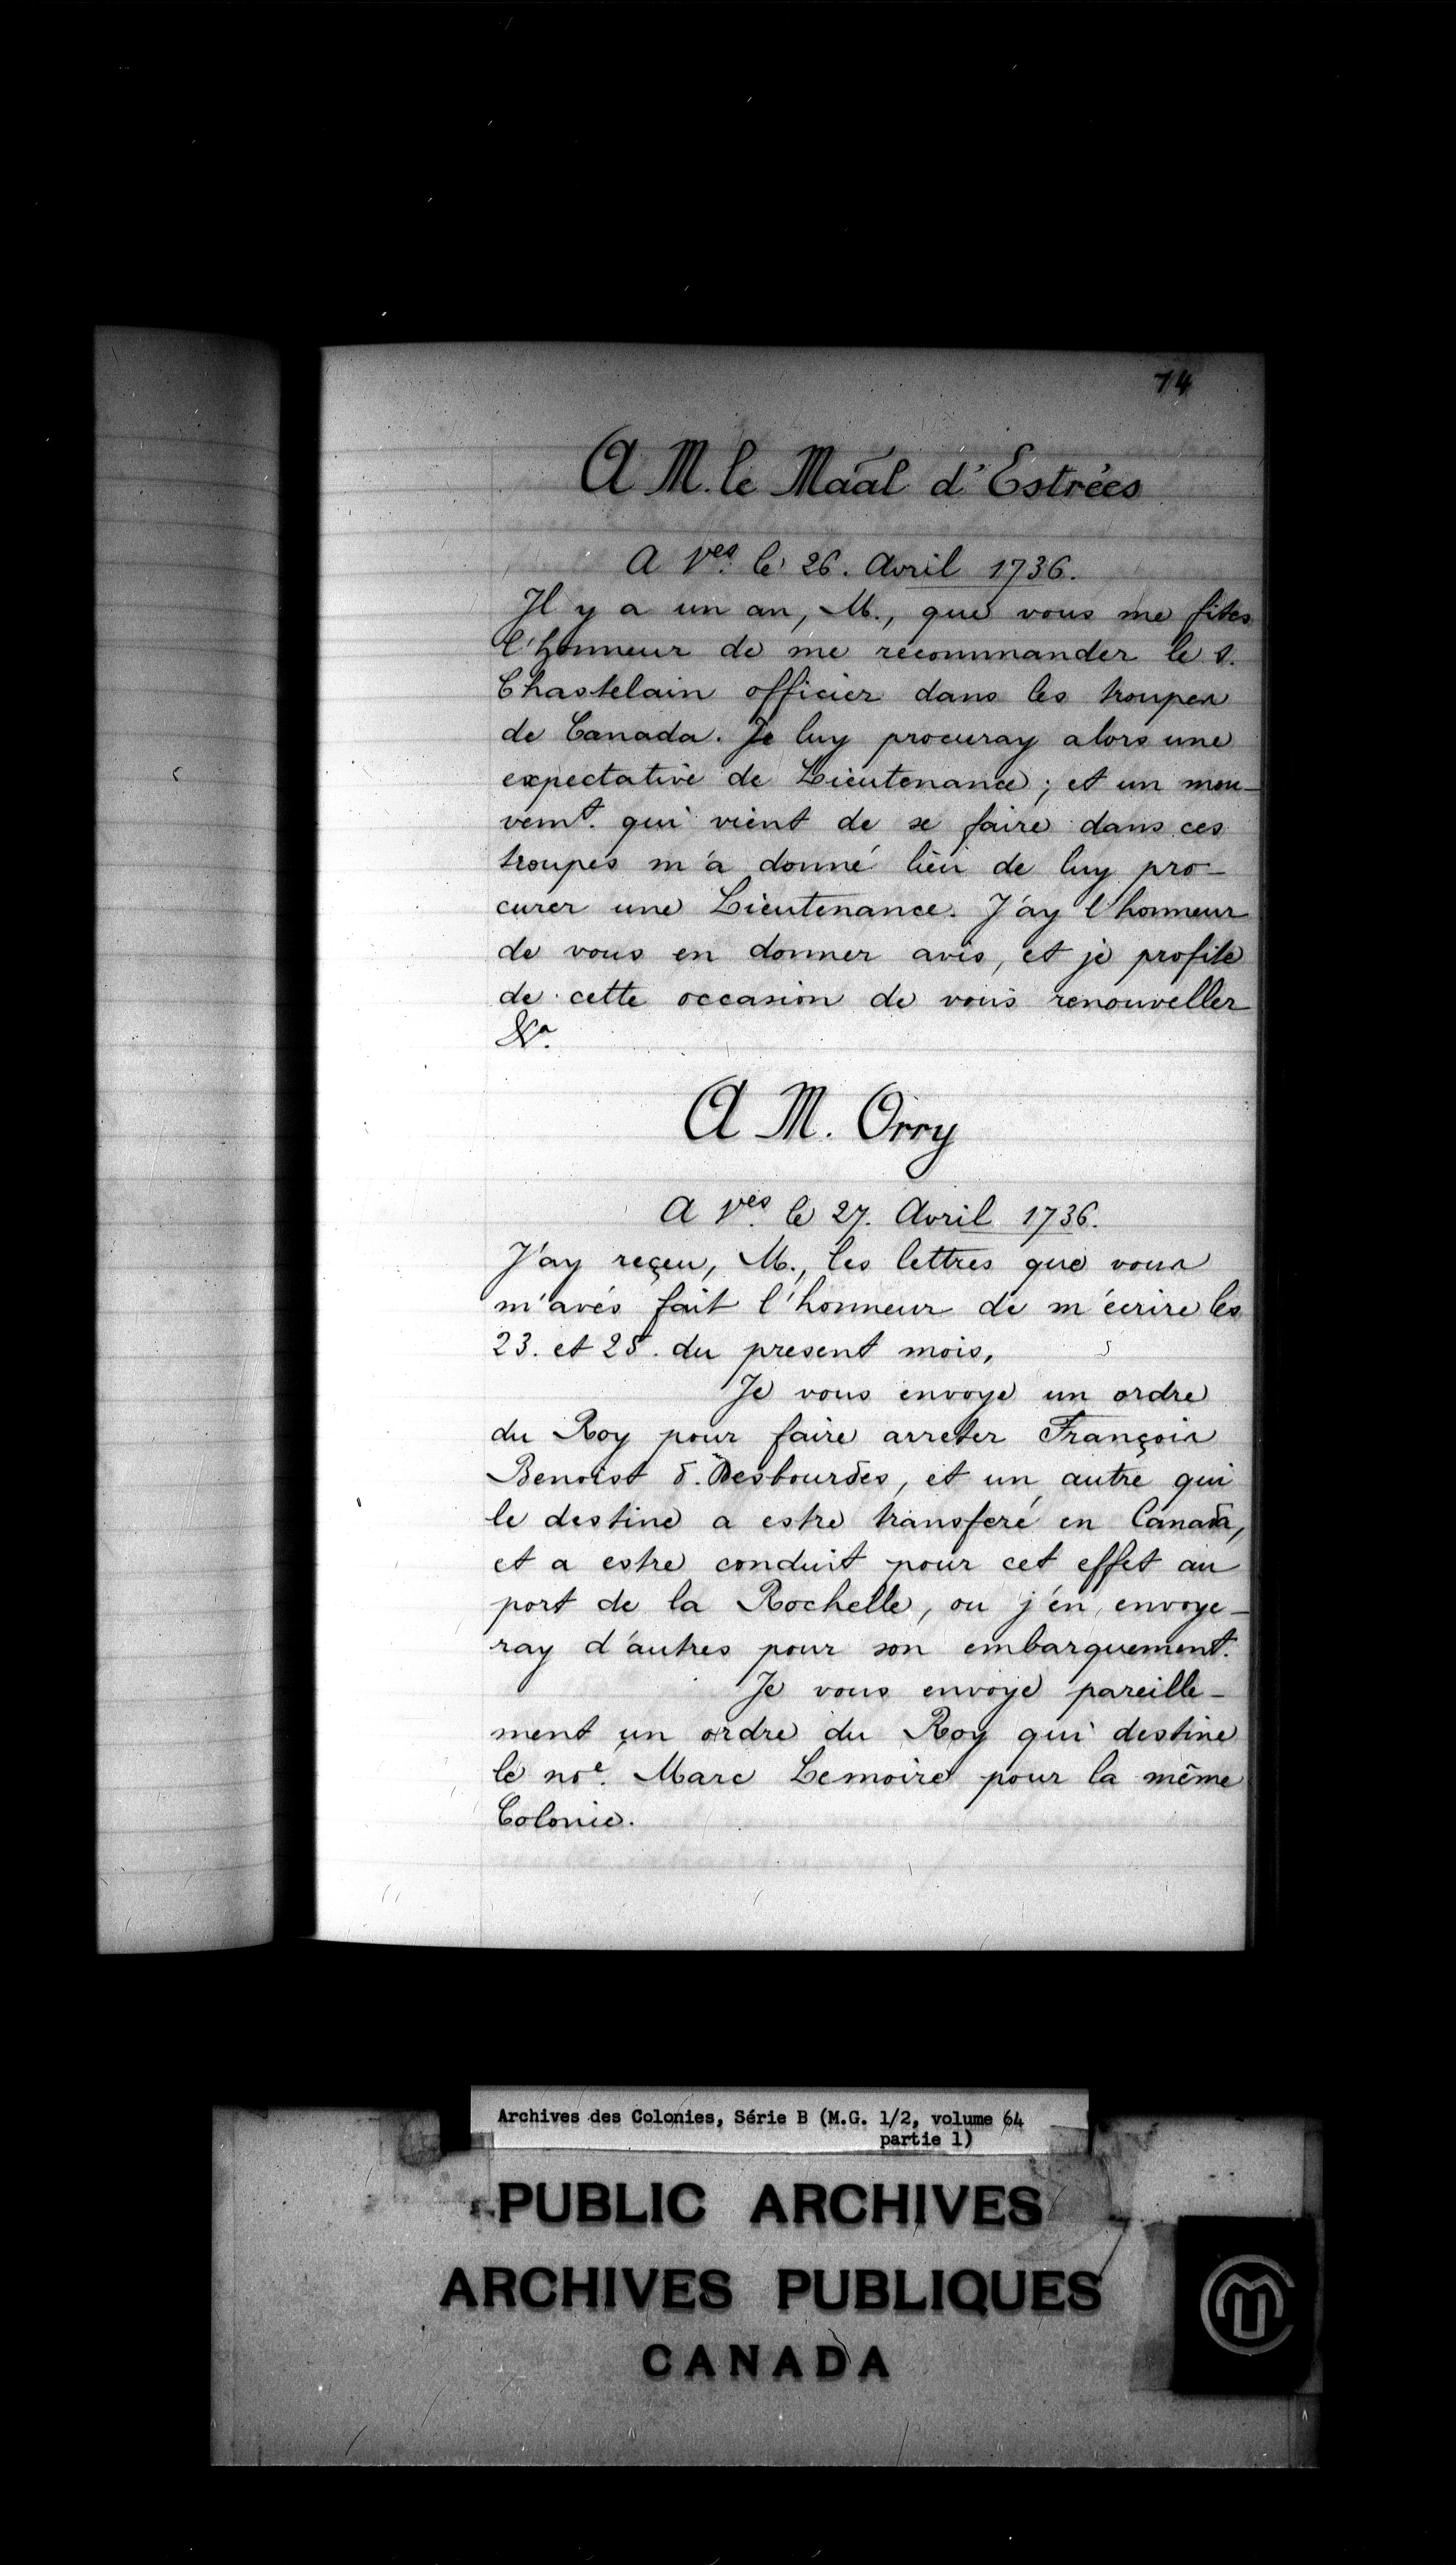 74
A M. le Maāl d'Estrées
A Ves. le 26. Avril 1736.
Il y a un an, M., que vous me fites
l'honneur de me recommander le s.
Chastelain officier dans les troupes
de Canada. Je luy procuray alors une
expectative de Lieutenance ; et un mou-
vemt. qui vient de se faire dans ces
troupes m'a donné lieu de luy pro-
curer une Lieutenance. J'ay l'honneur
de vous en donner avis, et je profite
de cette occasion de vous renouveller
&a.
A M. Orry
A Ves. le 27. Avril 1736.
J'ay reçeu, M., les lettres que vous
m'avés fait l'honneur de m'écrire les
23. et 25. du present mois,
Je vous envoye un ordre
du Roy pour faire arreter François
Benoist d. Desbourdes, et un autre qui
le destine a estre transferé en Canada,
et a estre conduit pour cet effet au
port de la Rochelle, ou j'en envoye-
ray d'autres pour son embarquement.
Je vous envoye pareille-
ment un ordre du Roy qui destine
le noe. Marc Lemoire pour la même
Colonie.
Archives des Colonies, Série B (M.G. 1/2, volume 64
partie 1)
PUBLIC ARCHIVES
ARCHIVES PUBLIQUES
CANADA